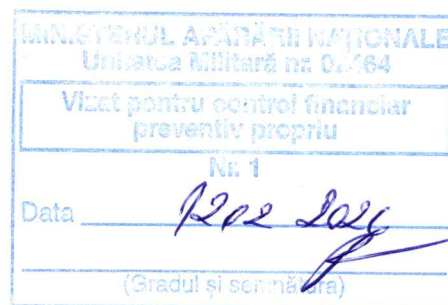 MINISTERUL APĂRĂRII NAȚIONALE
Unitatea Militară nr.
Vizat pentru control financiar
preventiv propriu
Nr. 1
Data 12 02
(Gradul și semnătura)